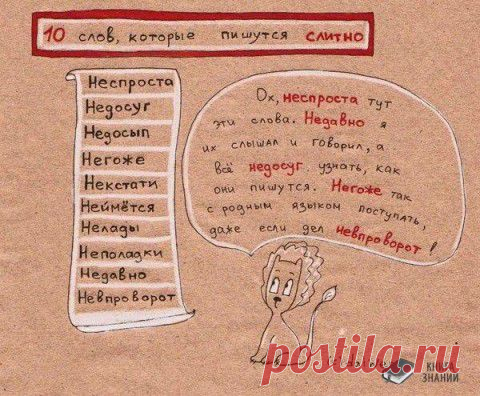 10 слов, которые пишутся СЛИТНО
Неспроста
Недосуг
Недосып
Негоже
Некстати
Неймётся
Нелады
Неполадки
Недавно
Невпроворот
Ох, неспроста тут
эти слова. Недавно я
их слышал и говорил, а
всё недосуг узнать, как
они пишутся. Негоже так
с родным языком поступать,
даже если дел невпроворот!
postila.ru
КНИГА
ЗНАНИЙ